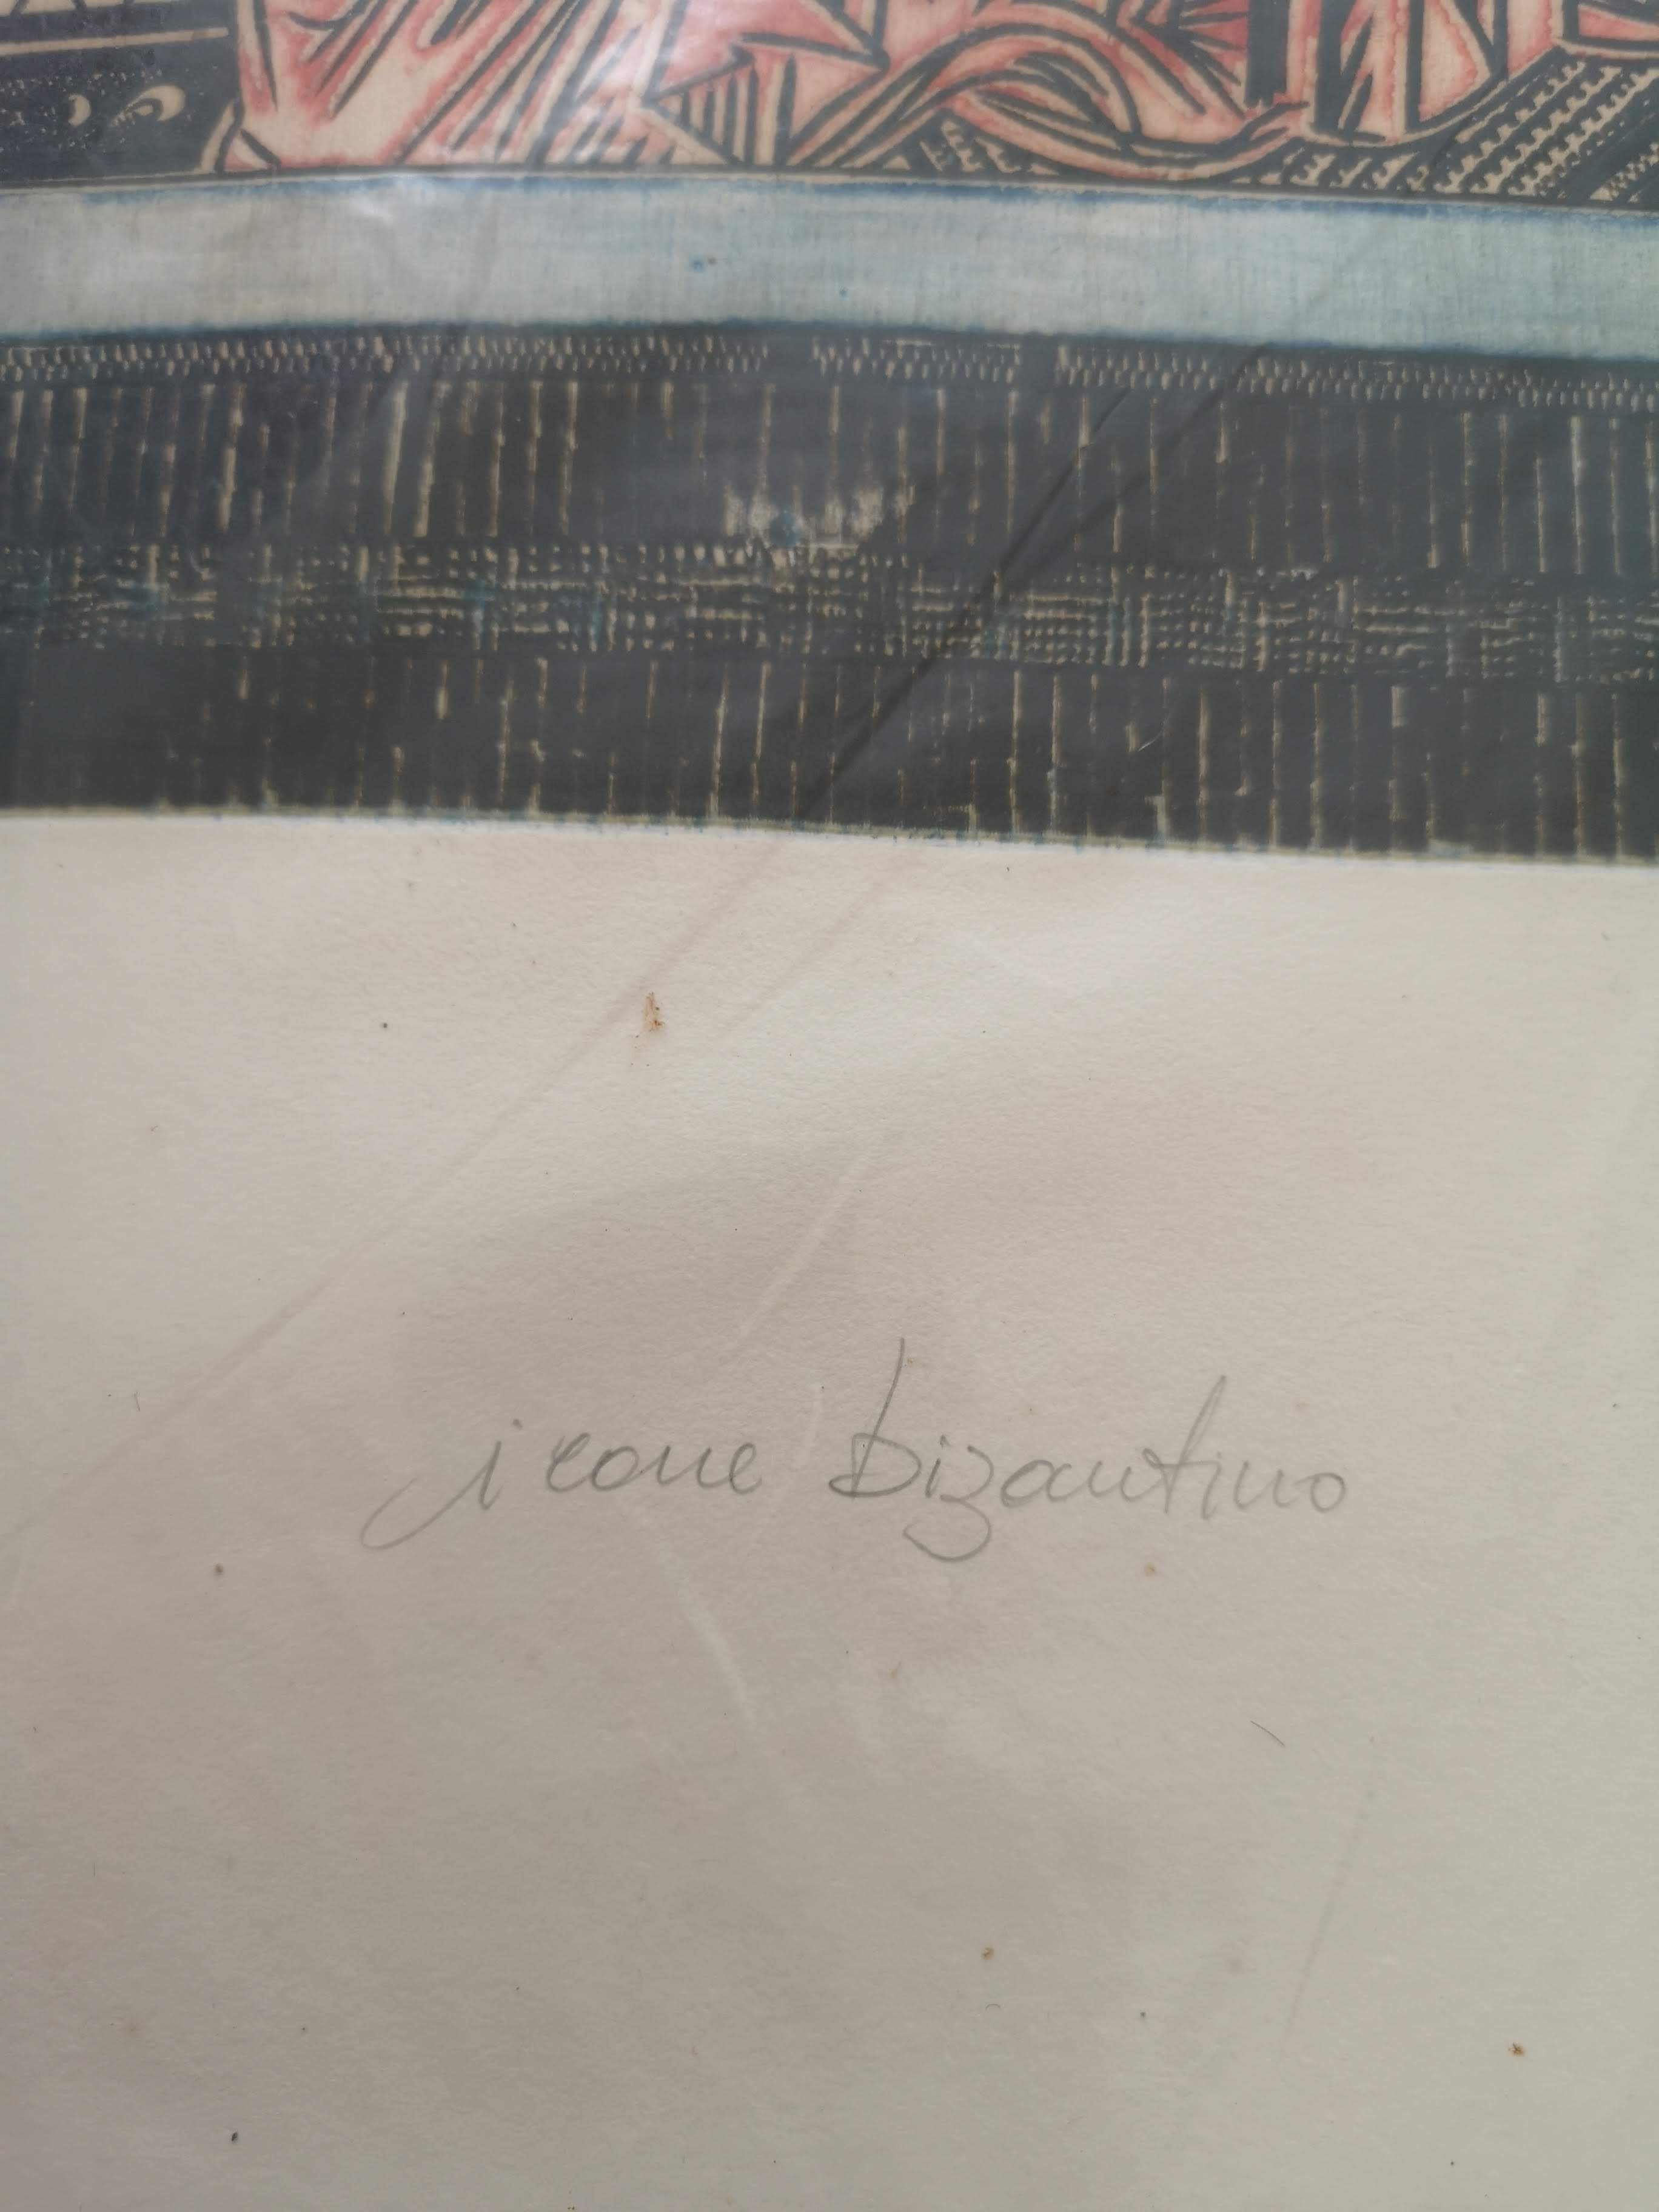 icone bizantino